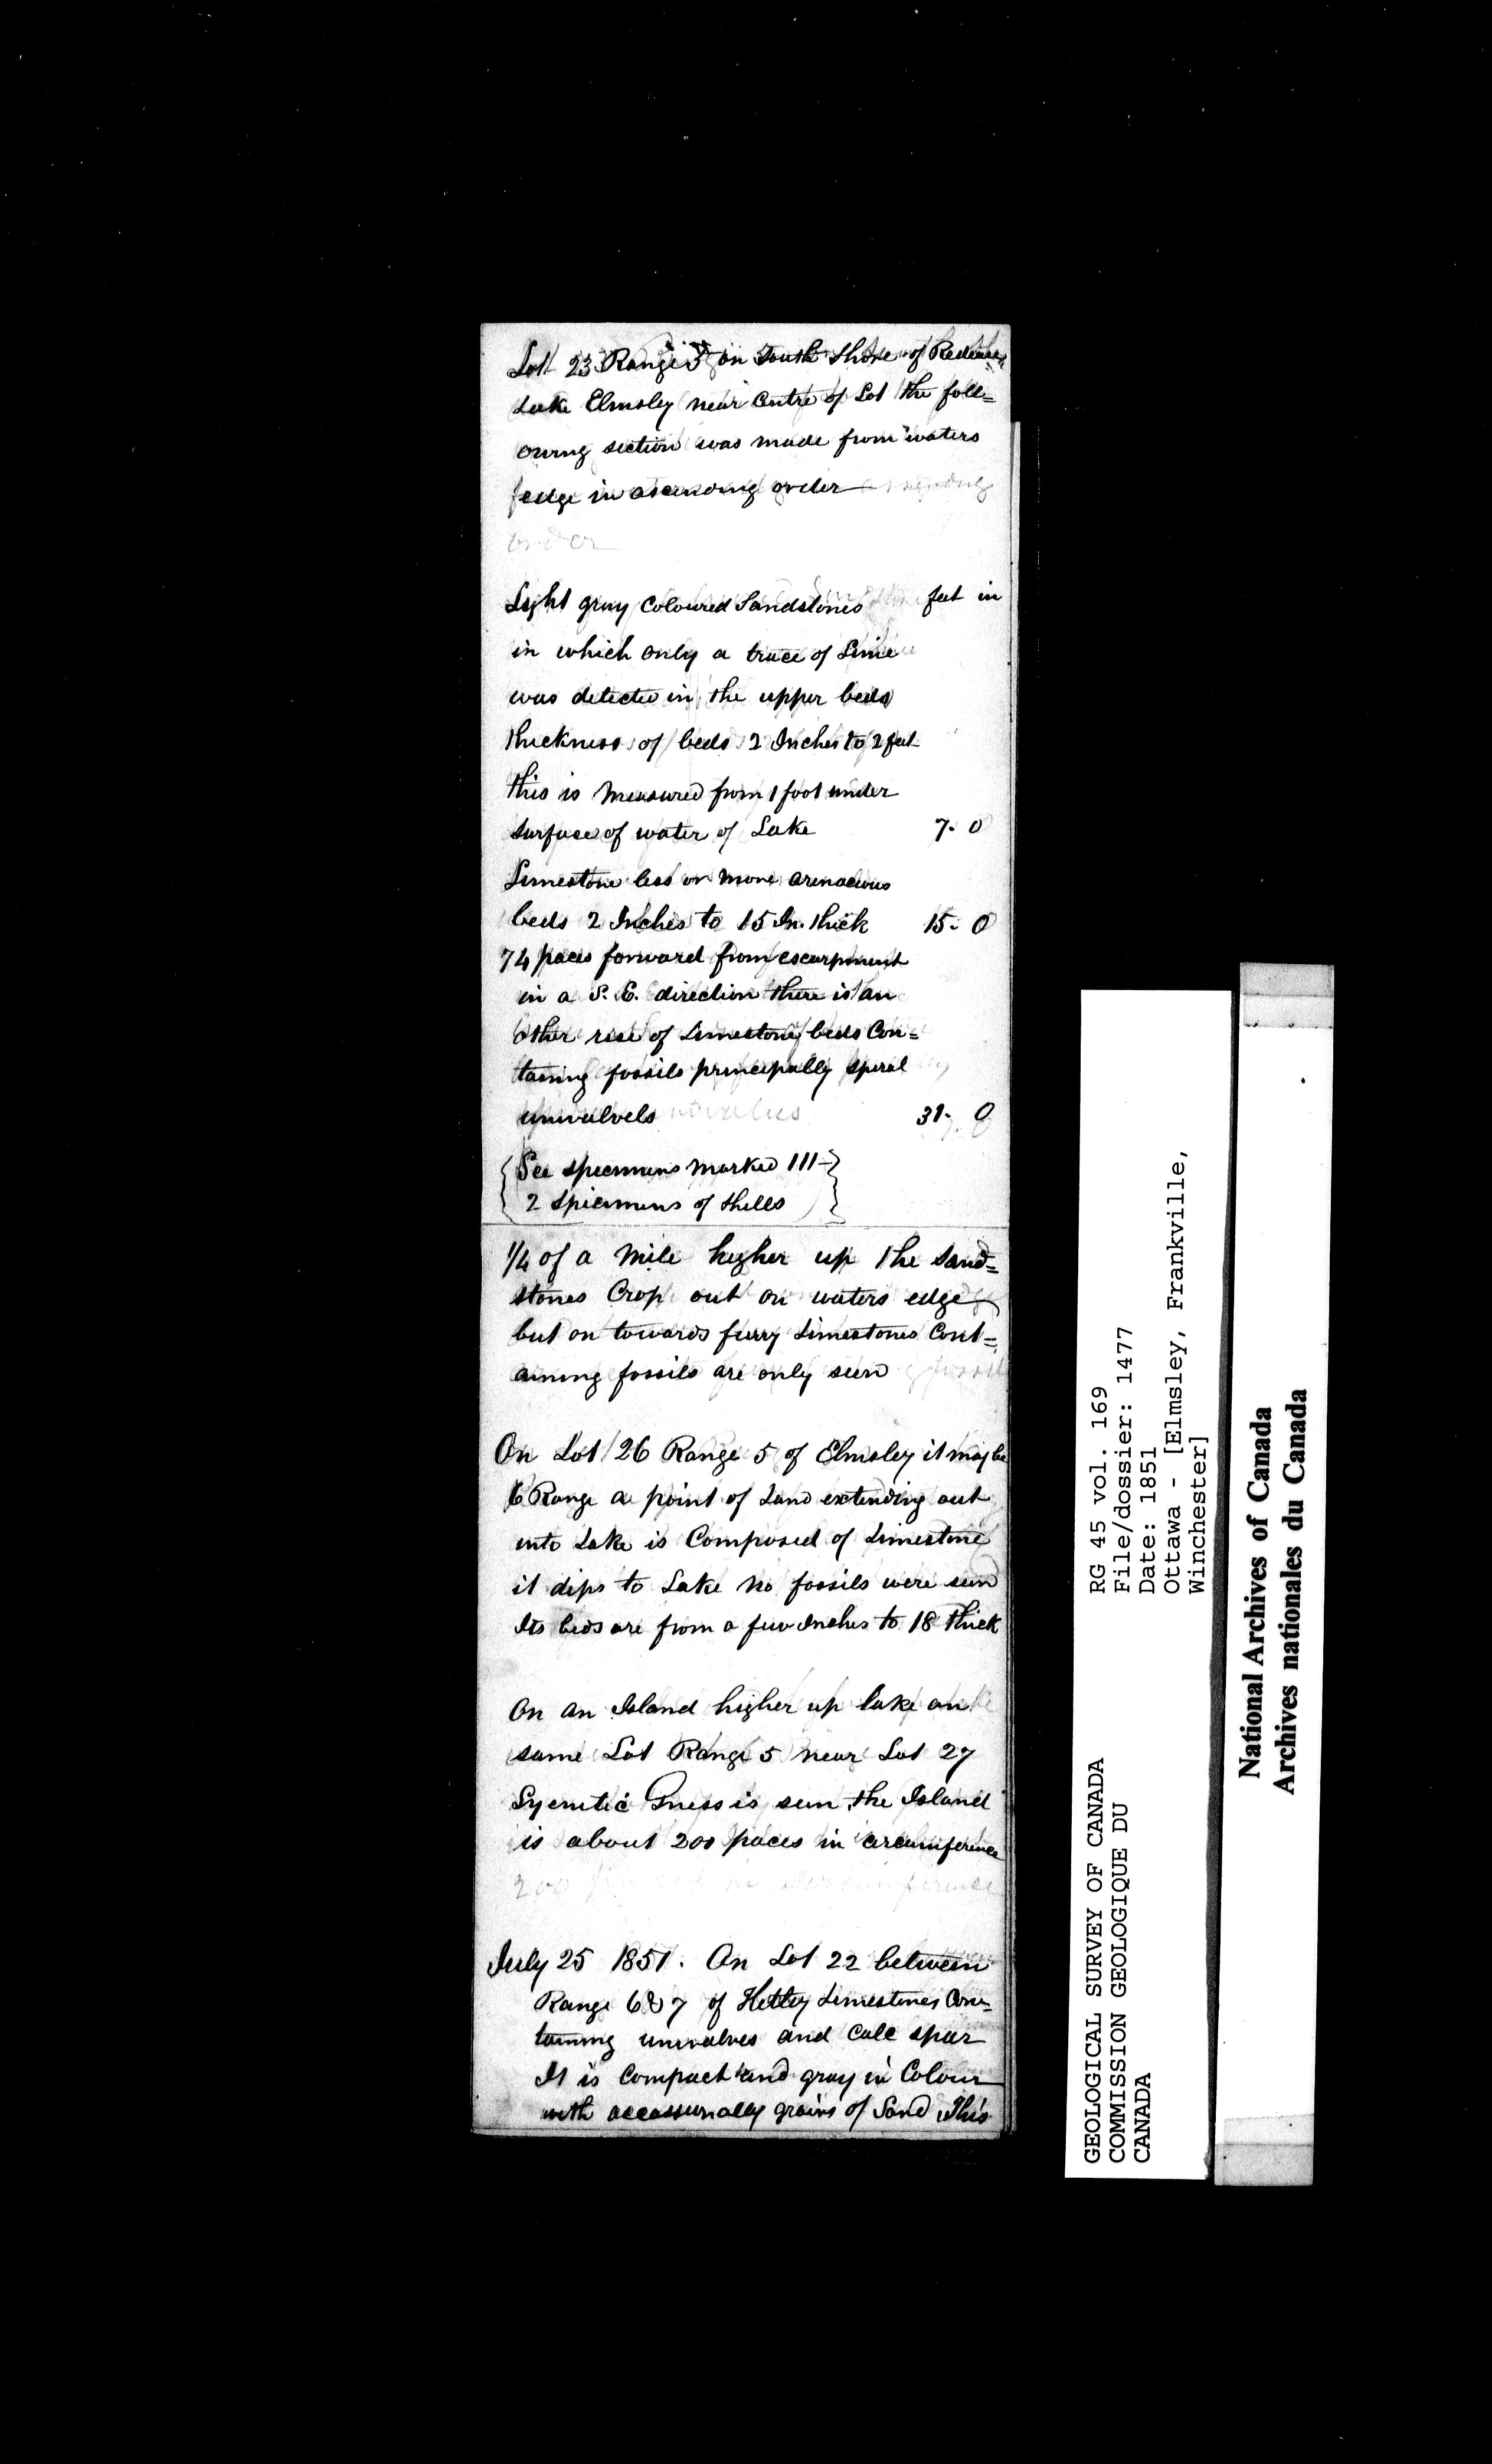 Lot 23 Range 5 on South Shore of Redeau
Lake Elmsley near Centre of Lot the foll=
owing section was made from waters
edge in ascending order
order
Light gray Coloured Sandstones feet in
in which only a trace of Lime
was detected in the upper beds
thickness of beds 2 Inches to 2 feet
this is Measured from 1 foot under
surface of water of Lake 7. 0
Limestone less or more arenaceous
beds 2 Inches to 15 In. thick 15. 0
74 paces forward from escarpment
in a S. E. direction there is an
other rise of Limestone beds Con=
taining fossils principally spiral
univalvels 31. 0
See specimens Marked 111
2 Specimens of Shells
1/4 of a Mile higher up the Sand=
stones Crop out on waters edge
but on towards ferry Limestones Cont=
aining fossils are only seen
On Lot 26 Range 5 of Elmsley it may be
6 Range a point of Land extending out
into Lake is Composed of Limestone
it dips to Lake No fossils were seen
Its beds are from a few Inches to 18 thick
On an Island higher up lake on
same Lot Range 5 near Lot 27
Syenitic Gneiss is seen the Island
is about 200 paces in circumference
July 25 1851. On Lot 22 between
Range 6 & 7 of Kitley Limestones Con=
taining univalves and Calc spar
It is Compact and gray in Colour
with occassionally grains of Sand This
GEOLOGICAL SURVEY OF CANADA
COMMISSION GEOLOGIQUE DU
CANADA
RG 45 vol. 169
File/dossier: 1477
Date: 1851
Ottawa - [Elmsley, Frankville,
Winchester]
National Archives of Canada
Archives nationales du Canada